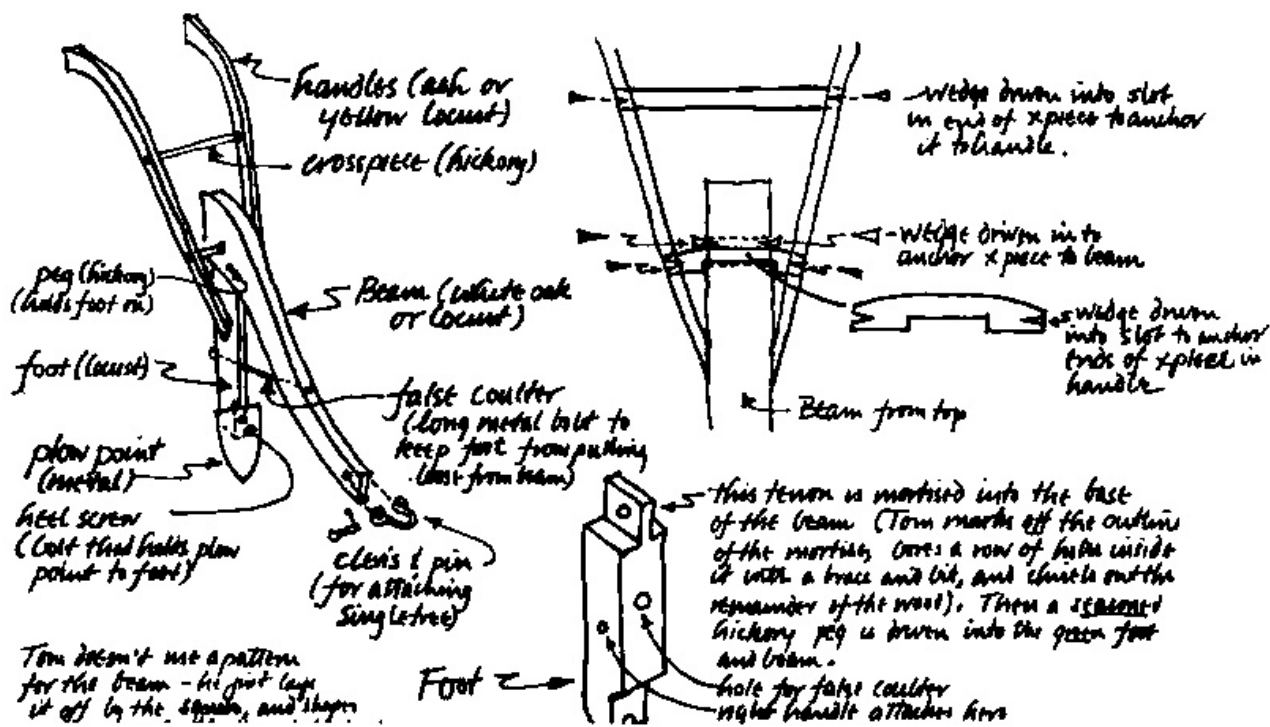 handles (ash or
yellow locust)
crosspiece (hickory)
peg (hickory)
(holds foot on)
Beam (white oak
or locust)
foot (locust)
false coulter
(long metal bolt to
keep foot from pushing
loose from beam)
plow point
(metal)
heel screw
(bolt that holds plow
point to foot)
clevis & pin
(for attaching
singletree)
Tom doesn't use a pattern
for the beam - he just lays
it off by the square, and shapes
wedge driven into slot
in end of xpiece to anchor
it to handle.
wedge driven in to
anchor xpiece to beam
wedge driven
into slot to anchor
ends of xpiece in
handle.
Beam from top
this tenon is mortised into the base
of the beam (Tom marks off the outline
of the mortise, bores a row of holes inside
it with a brace and bit, and chisels out the
remainder of the wood). Then a seasoned
hickory peg is driven into the green foot
and beam.
Foot
hole for false coulter
right handle attaches here